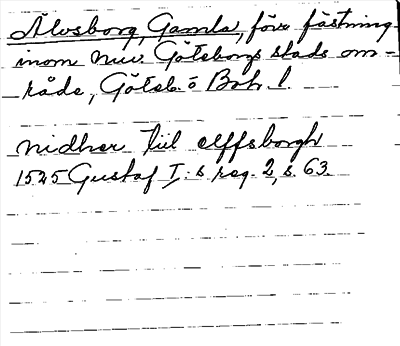 Älvsborg, Gamla, förr fästning
inom nuv. Göteborgs stads om-
råde, Göteb. o Boh. l.
nidher till elffsborgh
1525 Gustaf I:s reg. 2, s. 63.